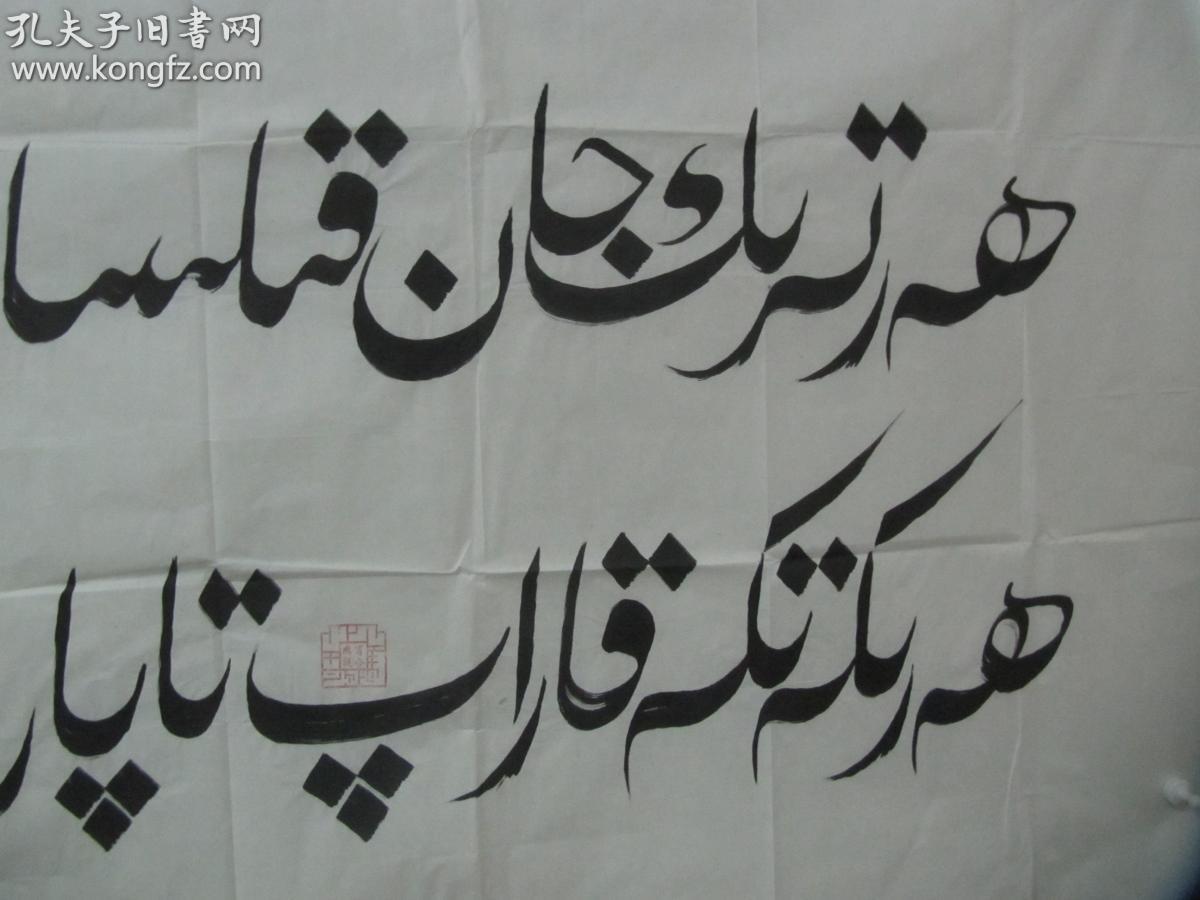 孔夫子旧书网
www.kongfz.com
ھەر تەرىك جان قىلسا
ھەرىكەتكە قاراپ تاپار